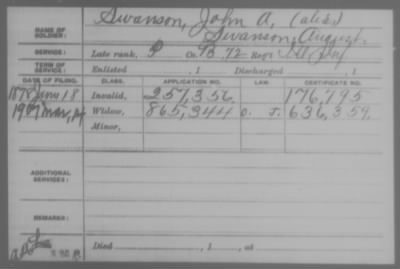 NAME OF SOLDIER: Swanson, John A. (alias)
Swanson, August.
SERVICE: Late rank, P Co. B 72 Reg't Ill Inf
TERM OF SERVICE: Enlisted , 1 Discharged , 1
DATE OF FILING. CLASS. APPLICATION NO. LAW. CERTIFICATE NO.
1878 June 18 Invalid, 257,356 176,495
Mar, 14 Widow, 865,344 O. J. 636,359
Minor,
ADDITIONAL SERVICES:
REMARKS:
Died , 1 , at